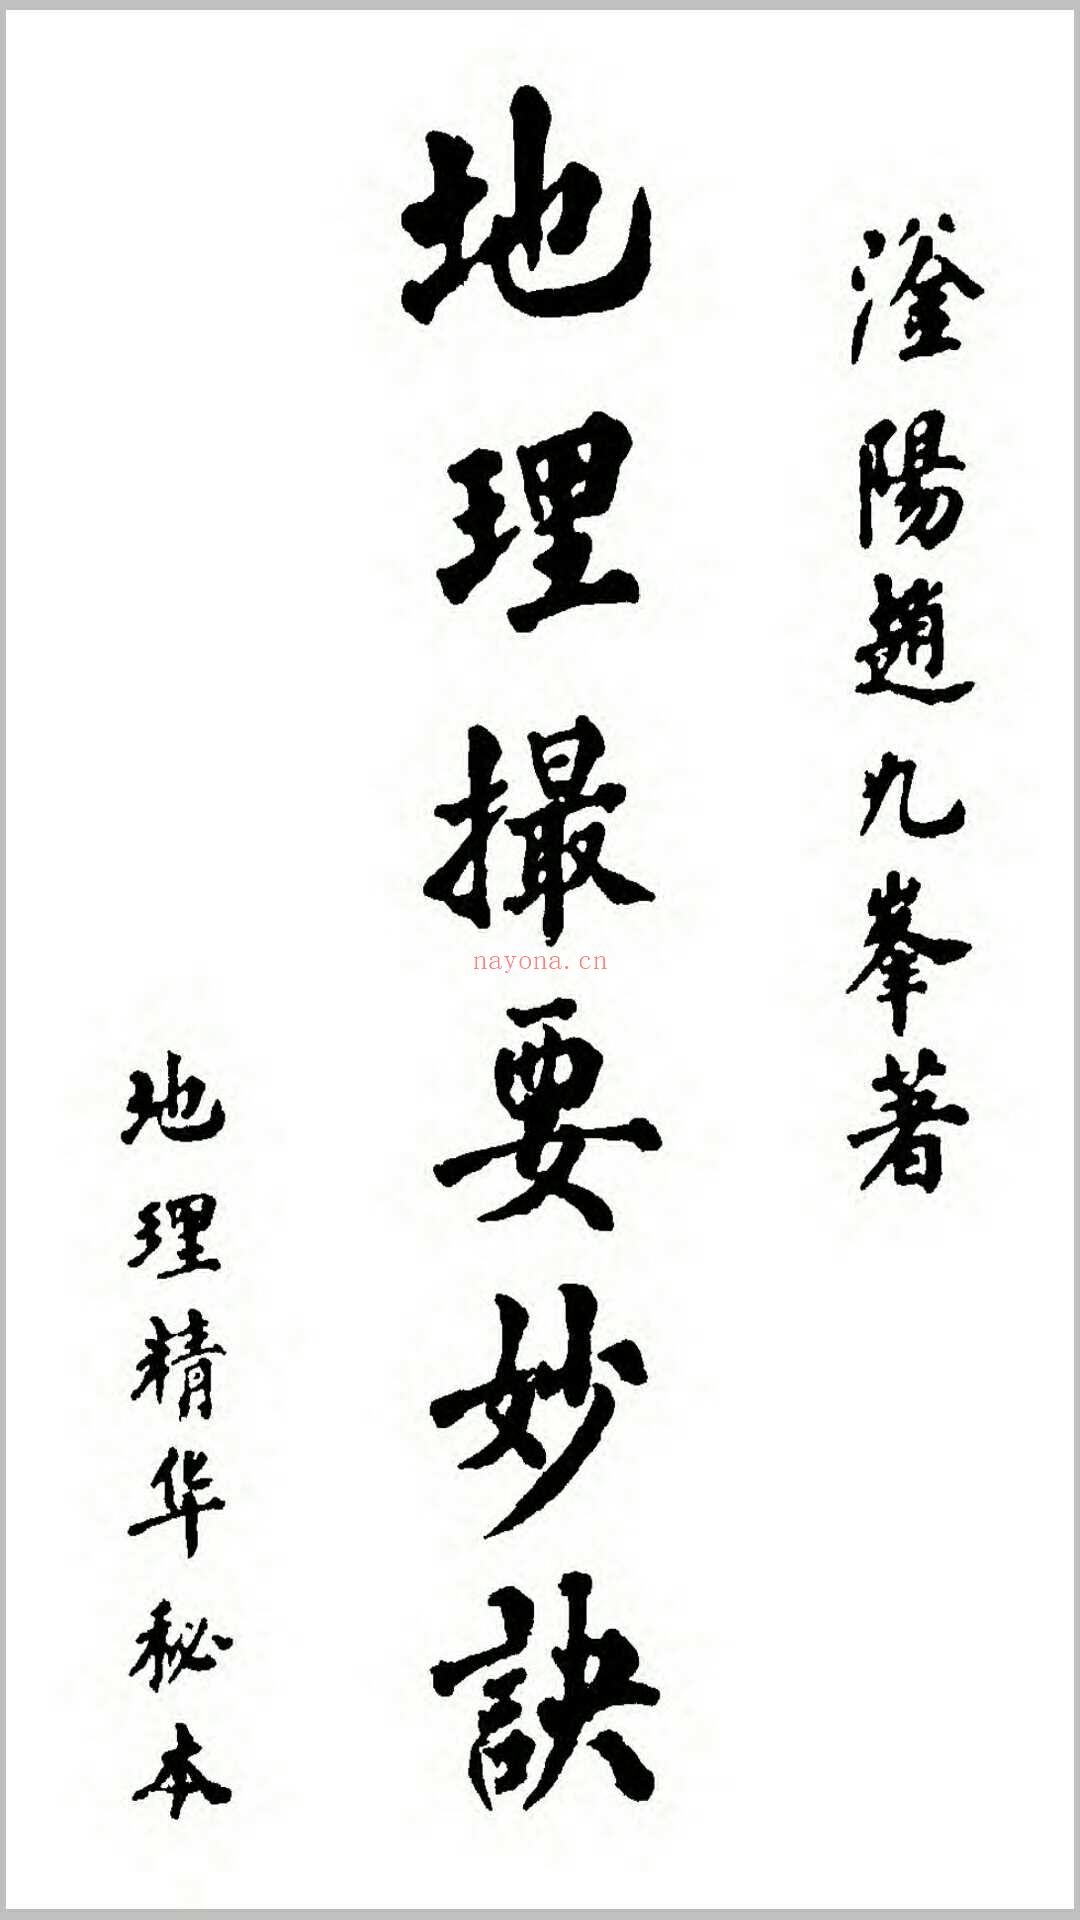 滏陽趙九峯著
地理撮要妙訣
地理精华秘本
nayona.cn